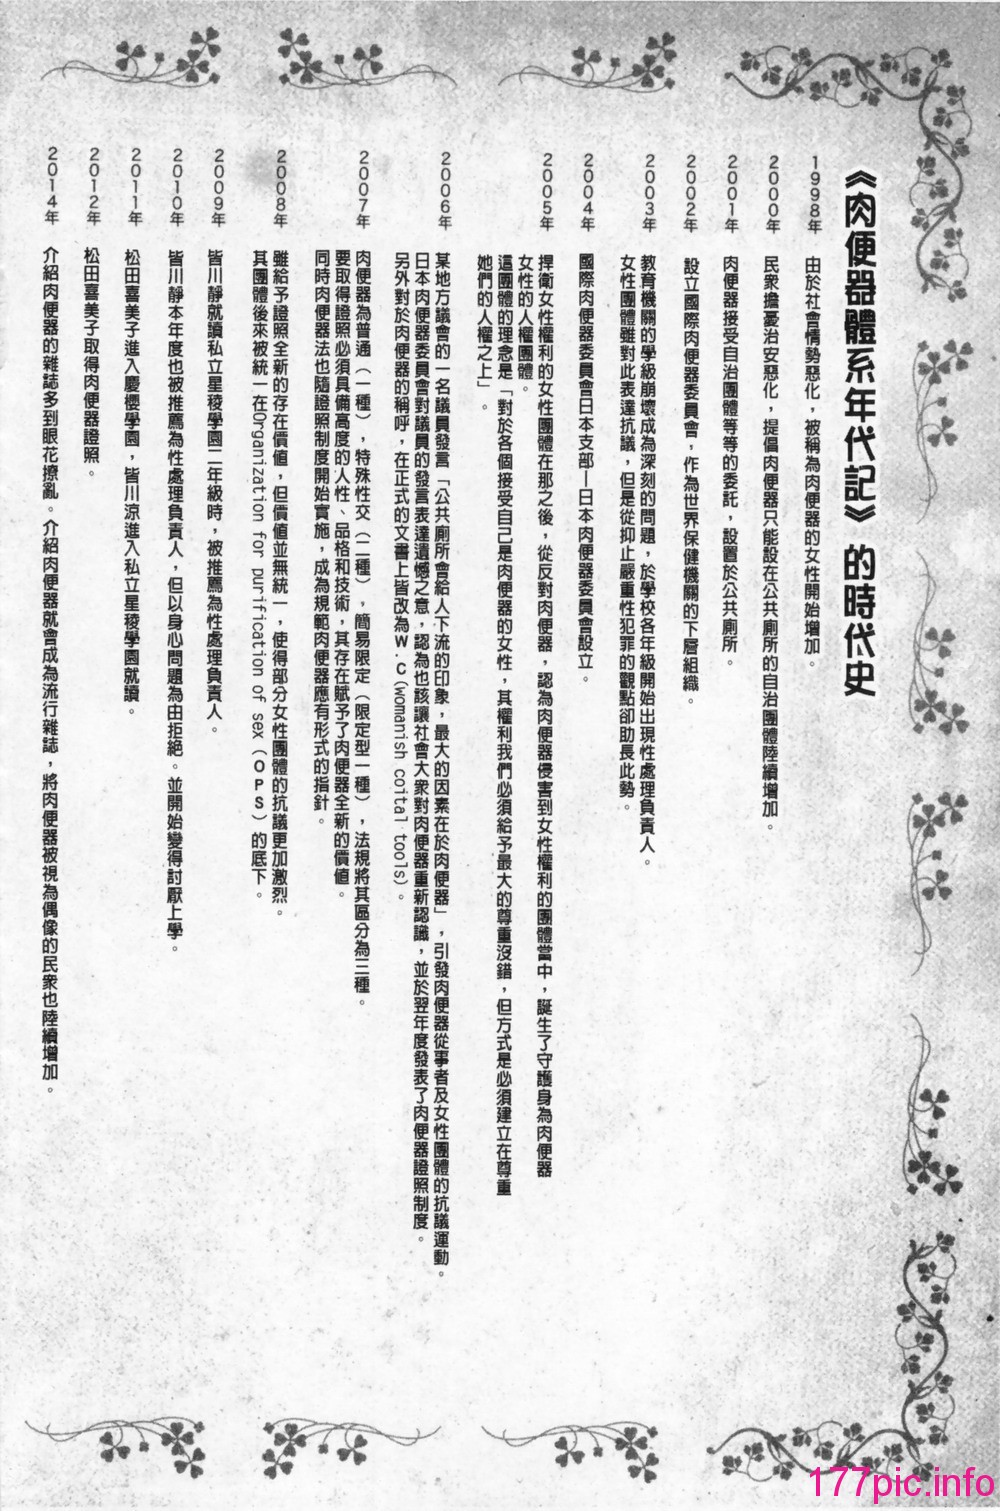 《肉便器體系年代記》的時代史
1998年 由於社會情勢惡化，被稱為肉便器的女性開始增加。
2000年 民衆擔憂治安惡化，提倡肉便器只能設在公共廁所的自治團體陸續增加。
2001年 肉便器接受自治團體等等的委託，設置於公共廁所。
2002年 設立國際肉便器委員會，作為世界保健機關的下層組織。
2003年 教育機關的學級崩壞成為深刻的問題，於學校各年級開始出現性處理負責人。
女性團體雖對此表達抗議，但是從抑止嚴重性犯罪的觀點卻助長此勢。
2004年 國際肉便器委員會日本支部—日本肉便器委員會設立。
2005年 捍衛女性權利的女性團體在那之後，從反對肉便器，認為肉便器侵害到女性權利的團體當中，誕生了守護身為肉便器
女性的人權團體。
這團體的理念是「對於各個接受自己是肉便器的女性，其權利我們必須給予最大的尊重沒錯，但方式是必須建立在尊重
她們的人權之上」。
2006年 某地方議會的一名議員發言「公共廁所會給人下流的印象，最大的因素在於肉便器」，引發肉便器從事者及女性團體的抗議運動。
日本肉便器委員會對議員的發言表達遺憾之意，認為也該讓社會大衆對肉便器重新認識，並於翌年度發表了肉便器證照制度。
另外對於肉便器的稱呼，在正式的文書上皆改為W·C(womanish coital tools)。
2007年 肉便器為普通（一種），特殊性交（二種），簡易限定（限定型一種），法規將其區分為三種。
要取得證照必須具備高度的人性、品格和技術，其存在賦予了肉便器全新的價值。
同時肉便器法也隨證照制度開始實施，成為規範肉便器應有形式的指針。
2008年 雖給予證照全新的存在價值，但價值並無統一，使得部分女性團體的抗議更加激烈。
其團體後來被統一在Organization for purification of sex（OPS）的底下。
2009年 皆川靜就讀私立星稜學園二年級時，被推薦為性處理負責人。
2010年 皆川靜本年度也被推薦為性處理負責人，但以身心問題為由拒絕。並開始變得討厭上學。
2011年 松田喜美子進入慶櫻學園，皆川涼進入私立星稜學園就讀。
2012年 松田喜美子取得肉便器證照。
2014年 介紹肉便器的雜誌多到眼花撩亂。介紹肉便器就會成為流行雜誌，將肉便器被視為偶像的民衆也陸續增加。
177pic.info